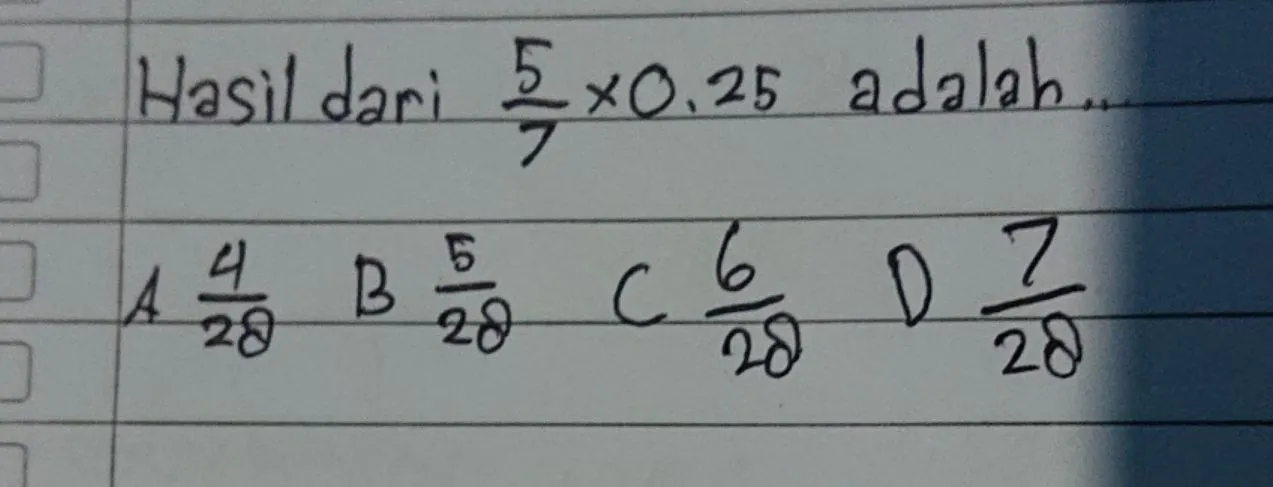 Hasil dari 5/7 × 0.25 adalah...
A 4/28 B 5/28 C 6/28 D 7/28